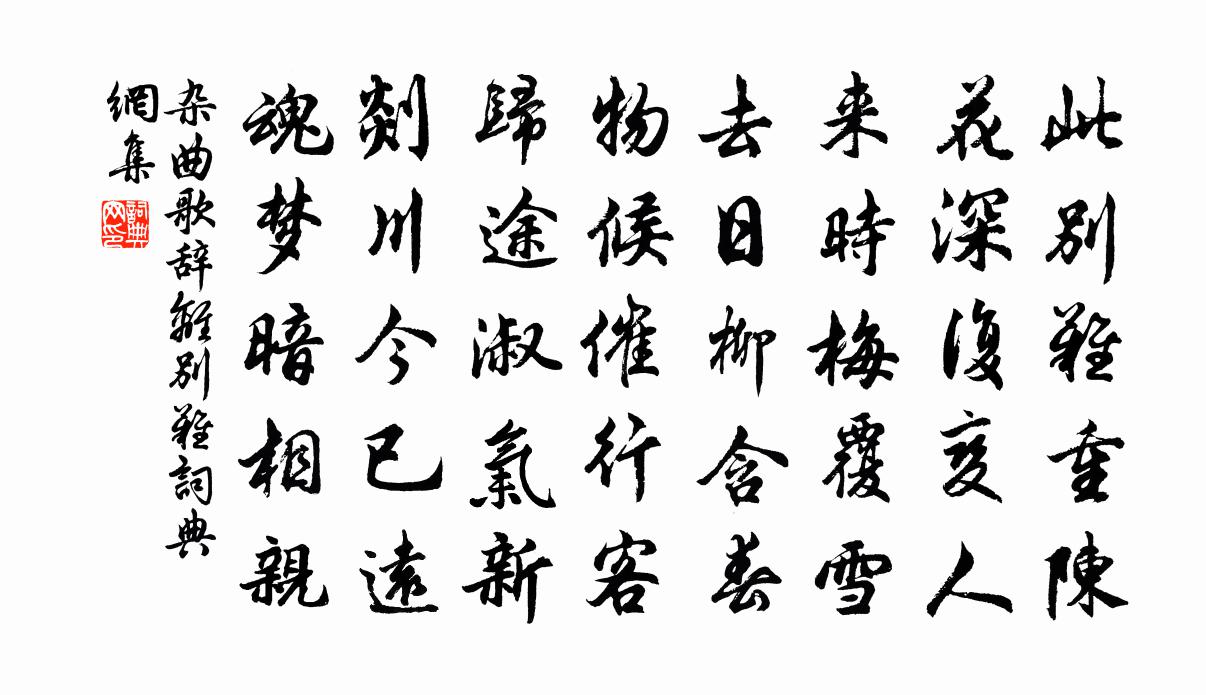 此别難重陳
花深復變人
来時梅覆雪
去日柳含春
物候催行客
歸途淑氣新
剡川今已遠
魂梦暗相親
杂曲歌辞離别難詞典
網集
詞典網印